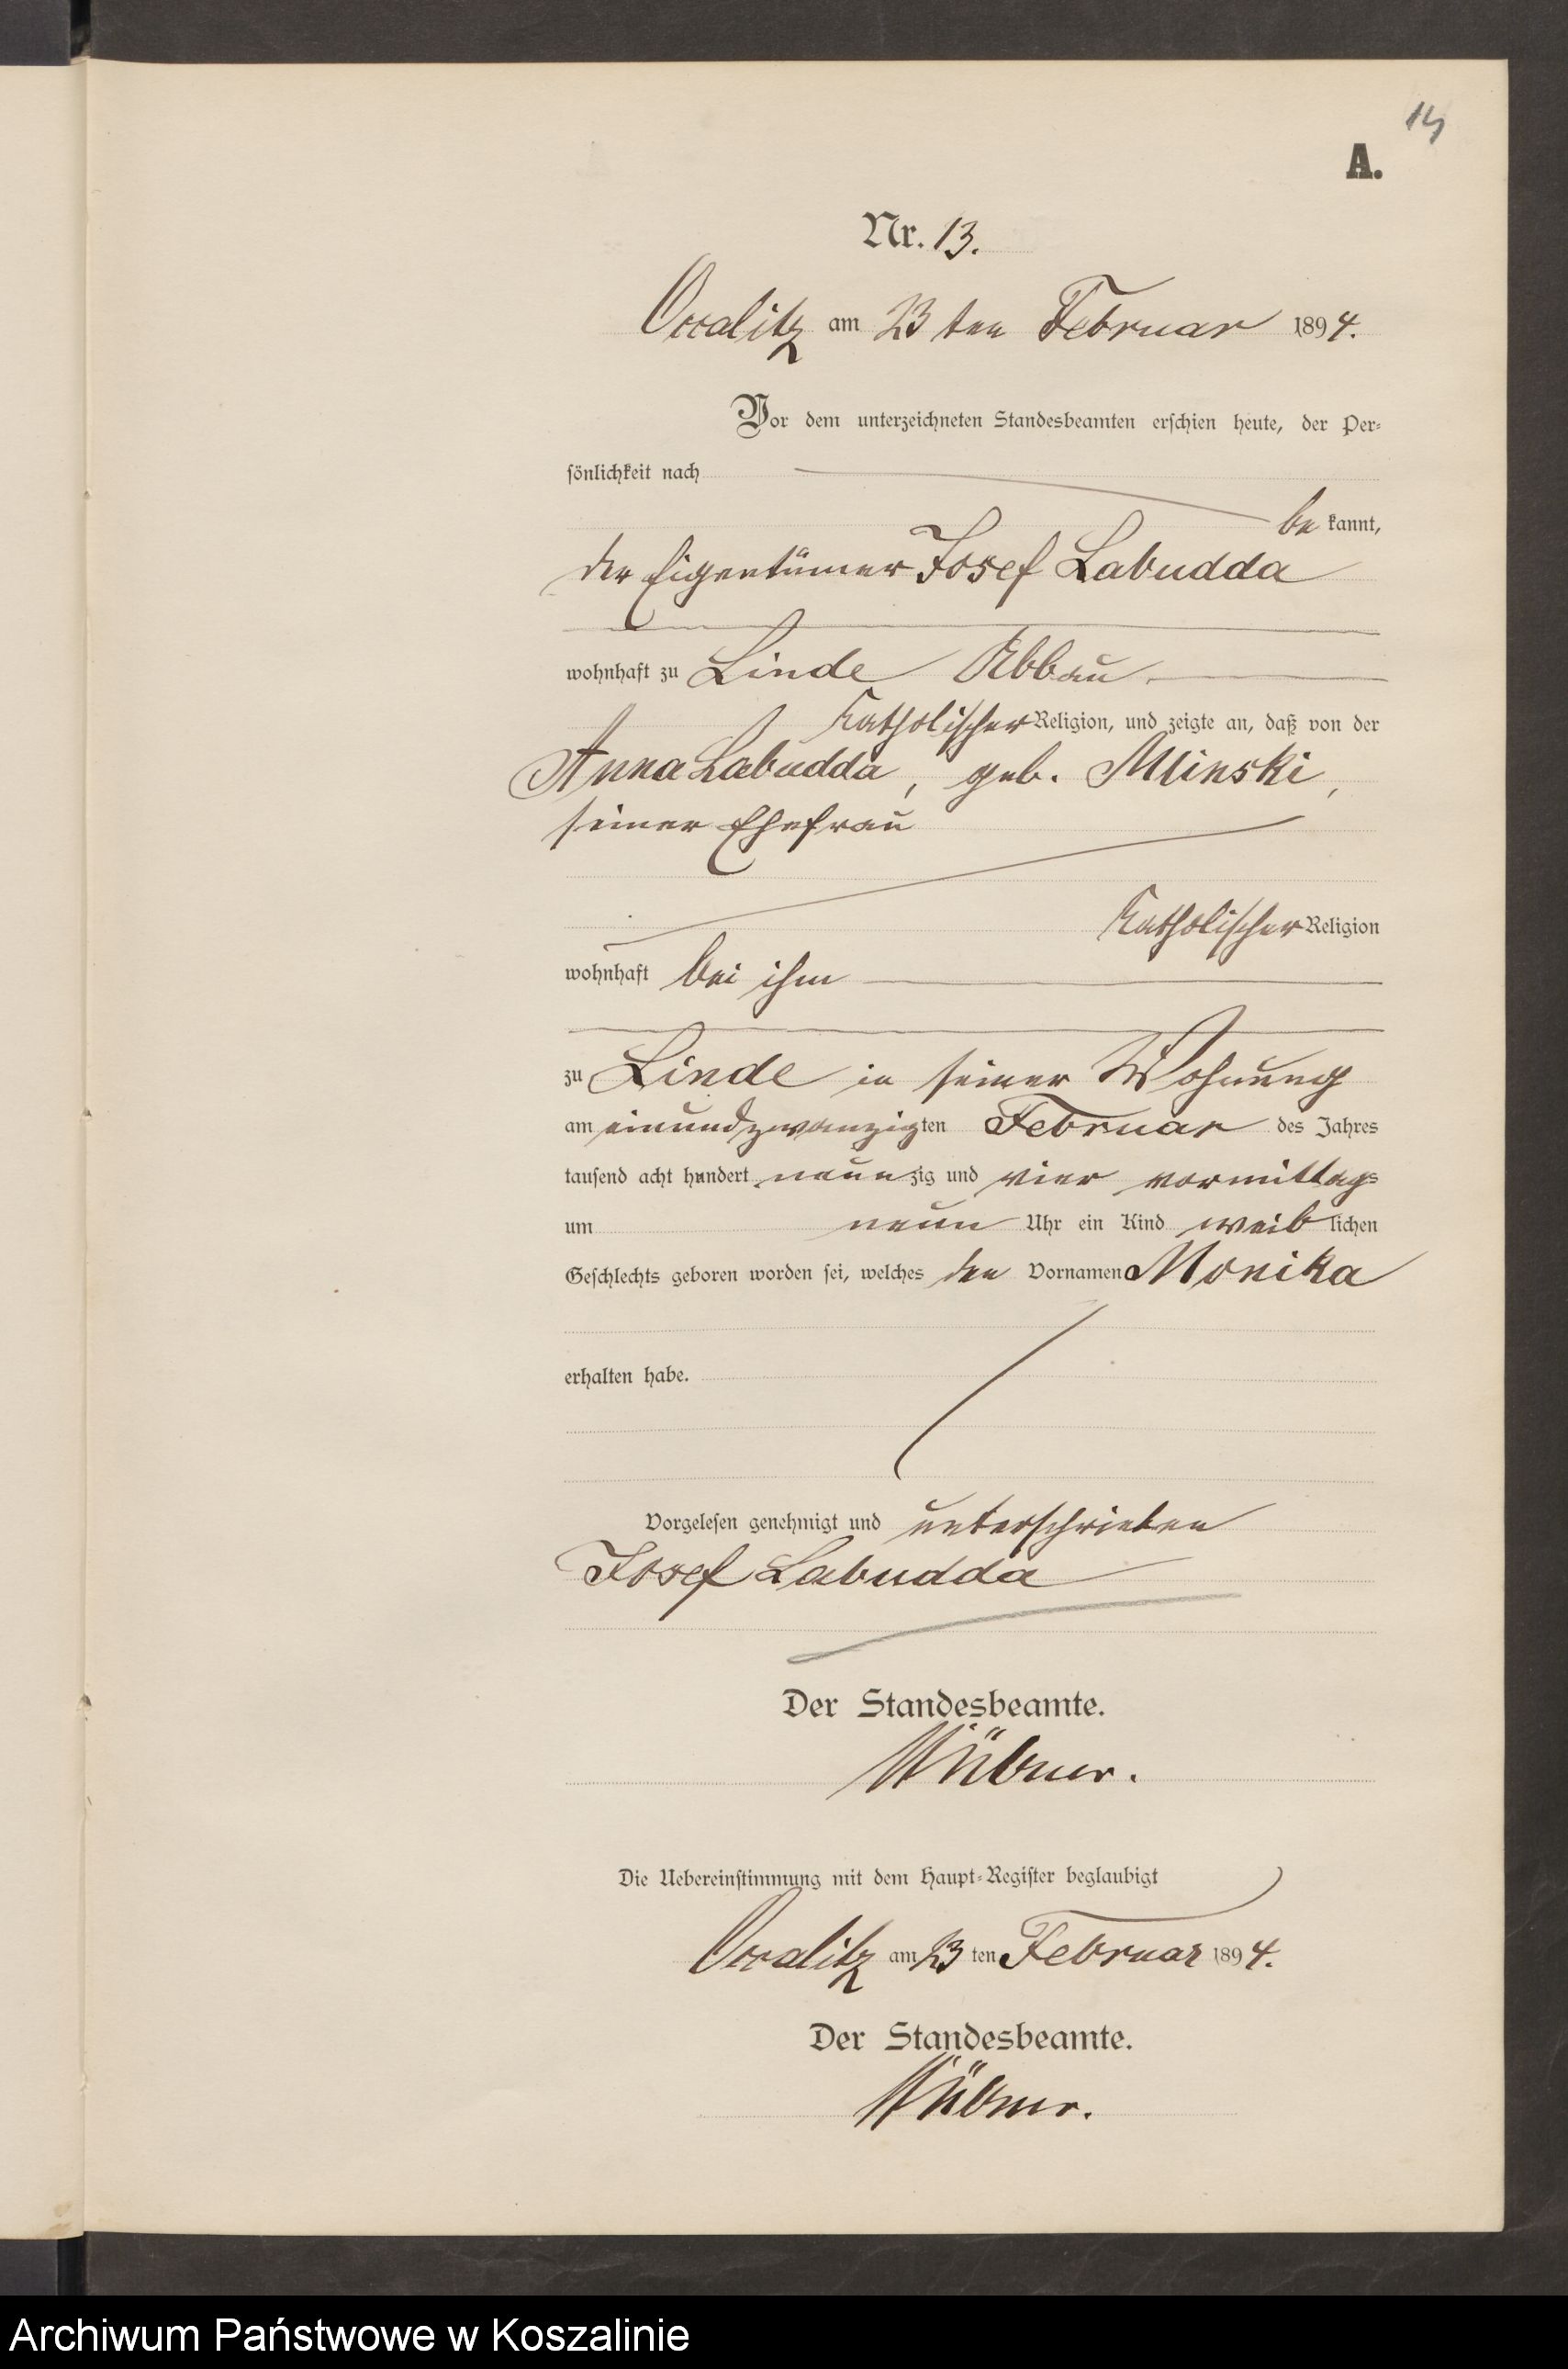 14
A.
Nr. 13.
Occalitz am 23 ten Februar 1894.
Vor dem unterzeichneten Standesbeamten erschien heute, der Per-
sönlichkeit nach
be kannt,
der Eigentümer Josef Labudda
wohnhaft zu Linde Abbau
katholischer Religion, und zeigte an, daß von der
Anna Labudda, geb. Mlinski,
seiner Ehefrau
katholischer Religion
wohnhaft bei ihm
zu Linde in seiner Wohnung
am einundzwanzigten Februar des Jahres
tausend acht hundert neunzig und vier vormittags
um neun Uhr ein Kind weiblichen
Geschlechts geboren worden sei, welches den Vornamen Monika
erhalten habe.
Vorgelesen genehmigt und unterschrieben
Josef Labudda
Der Standesbeamte.
Die Uebereinstimmung mit dem Haupt-Register beglaubigt
Occalitz am 23 ten Februar 1894.
Der Standesbeamte.
Archiwum Państwowe w Koszalinie